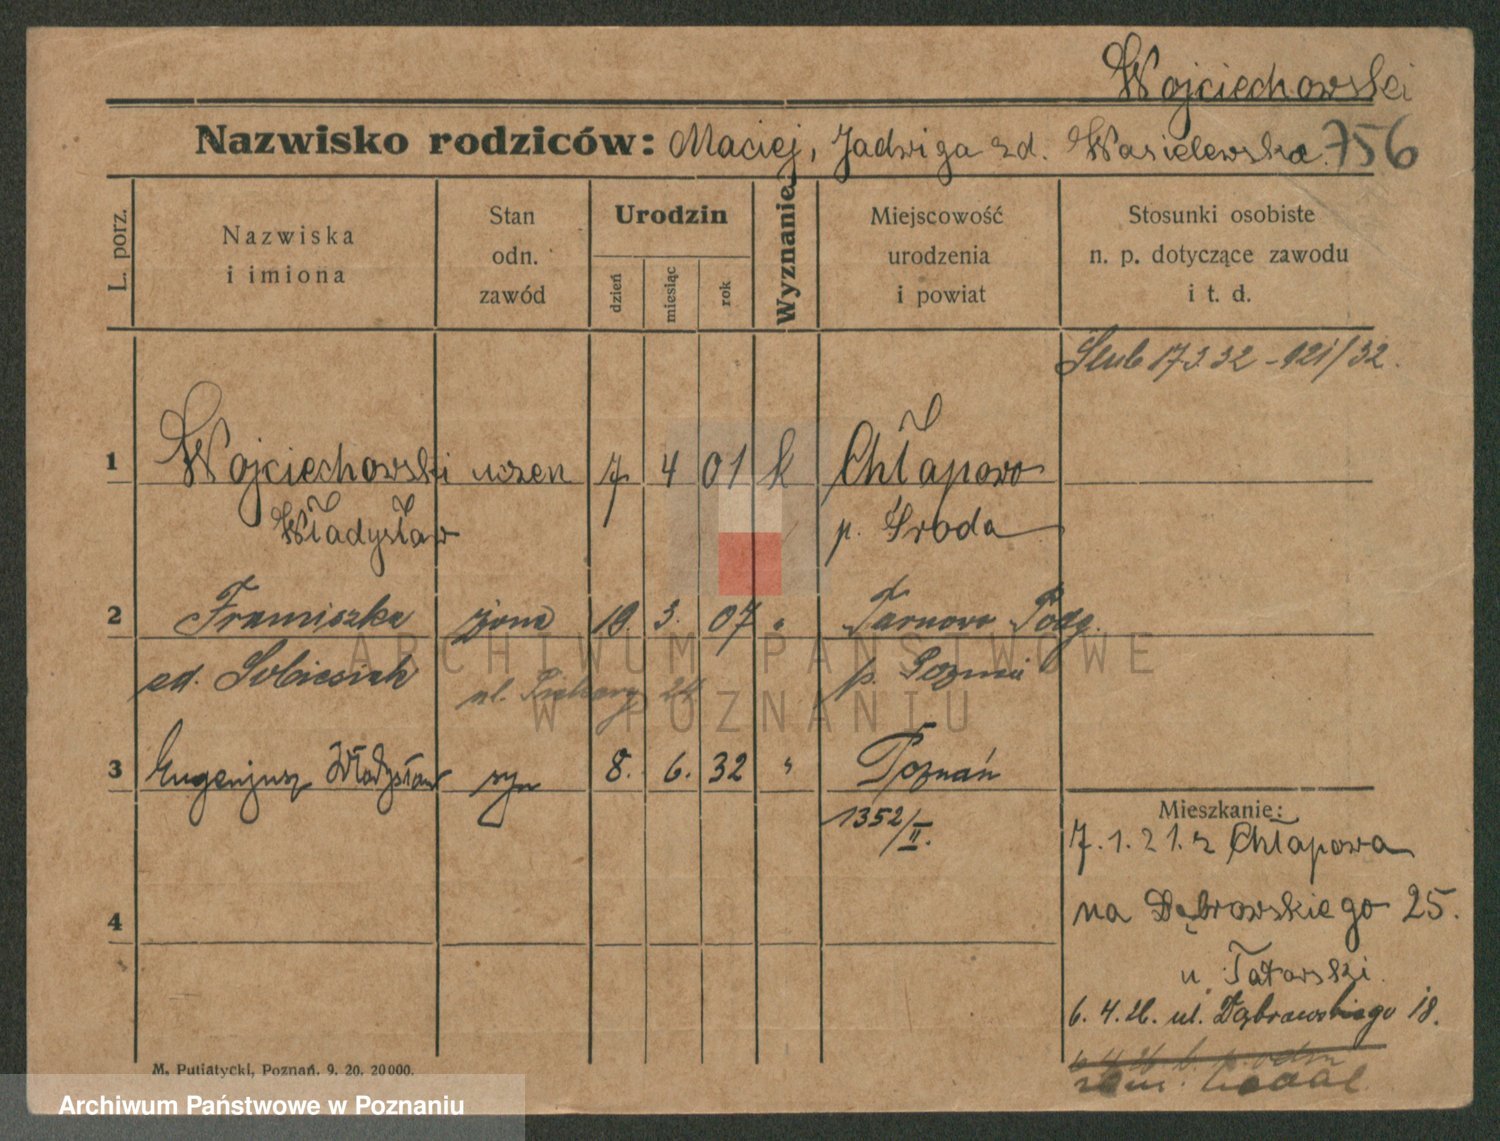 Wojciechowski
Nazwisko rodziców: Maciej, Jadwiga zd. Wasielewska. 756
L. porz.
Nazwiska
i imiona
Stan
odn.
zawód
Urodzin
dzień
miesiąc
rok
Wyznanie
Miejscowość
urodzenia
i powiat
Stosunki osobiste
n. p. dotyczące zawodu
i t. d.
Ślub 17 3 32 - 121/32.
1 Wojciechowski uczen 7 4 01 k Chłapowo
Władysław p. Środa
2 Franciszka żona 10 3. 07 " Tarnowo Podg.
zd. Sobiesiak ul. 24 p. Poznań
ARCHIWUM PAŃSTWOWE
W POZNANIU
3 Eugenjusz Władysław syn 8. 6. 32 " Poznań
1352/II.
Mieszkanie:
7. 1. 21. z Chłapowa
na Dąbrowskiego 25.
u. Tatarski.
6. 4. 26. ul. Dąbrowskiego 18.
4
M. Putiatycki, Poznań. 9. 20. 20000.
Archiwum Państwowe w Poznaniu